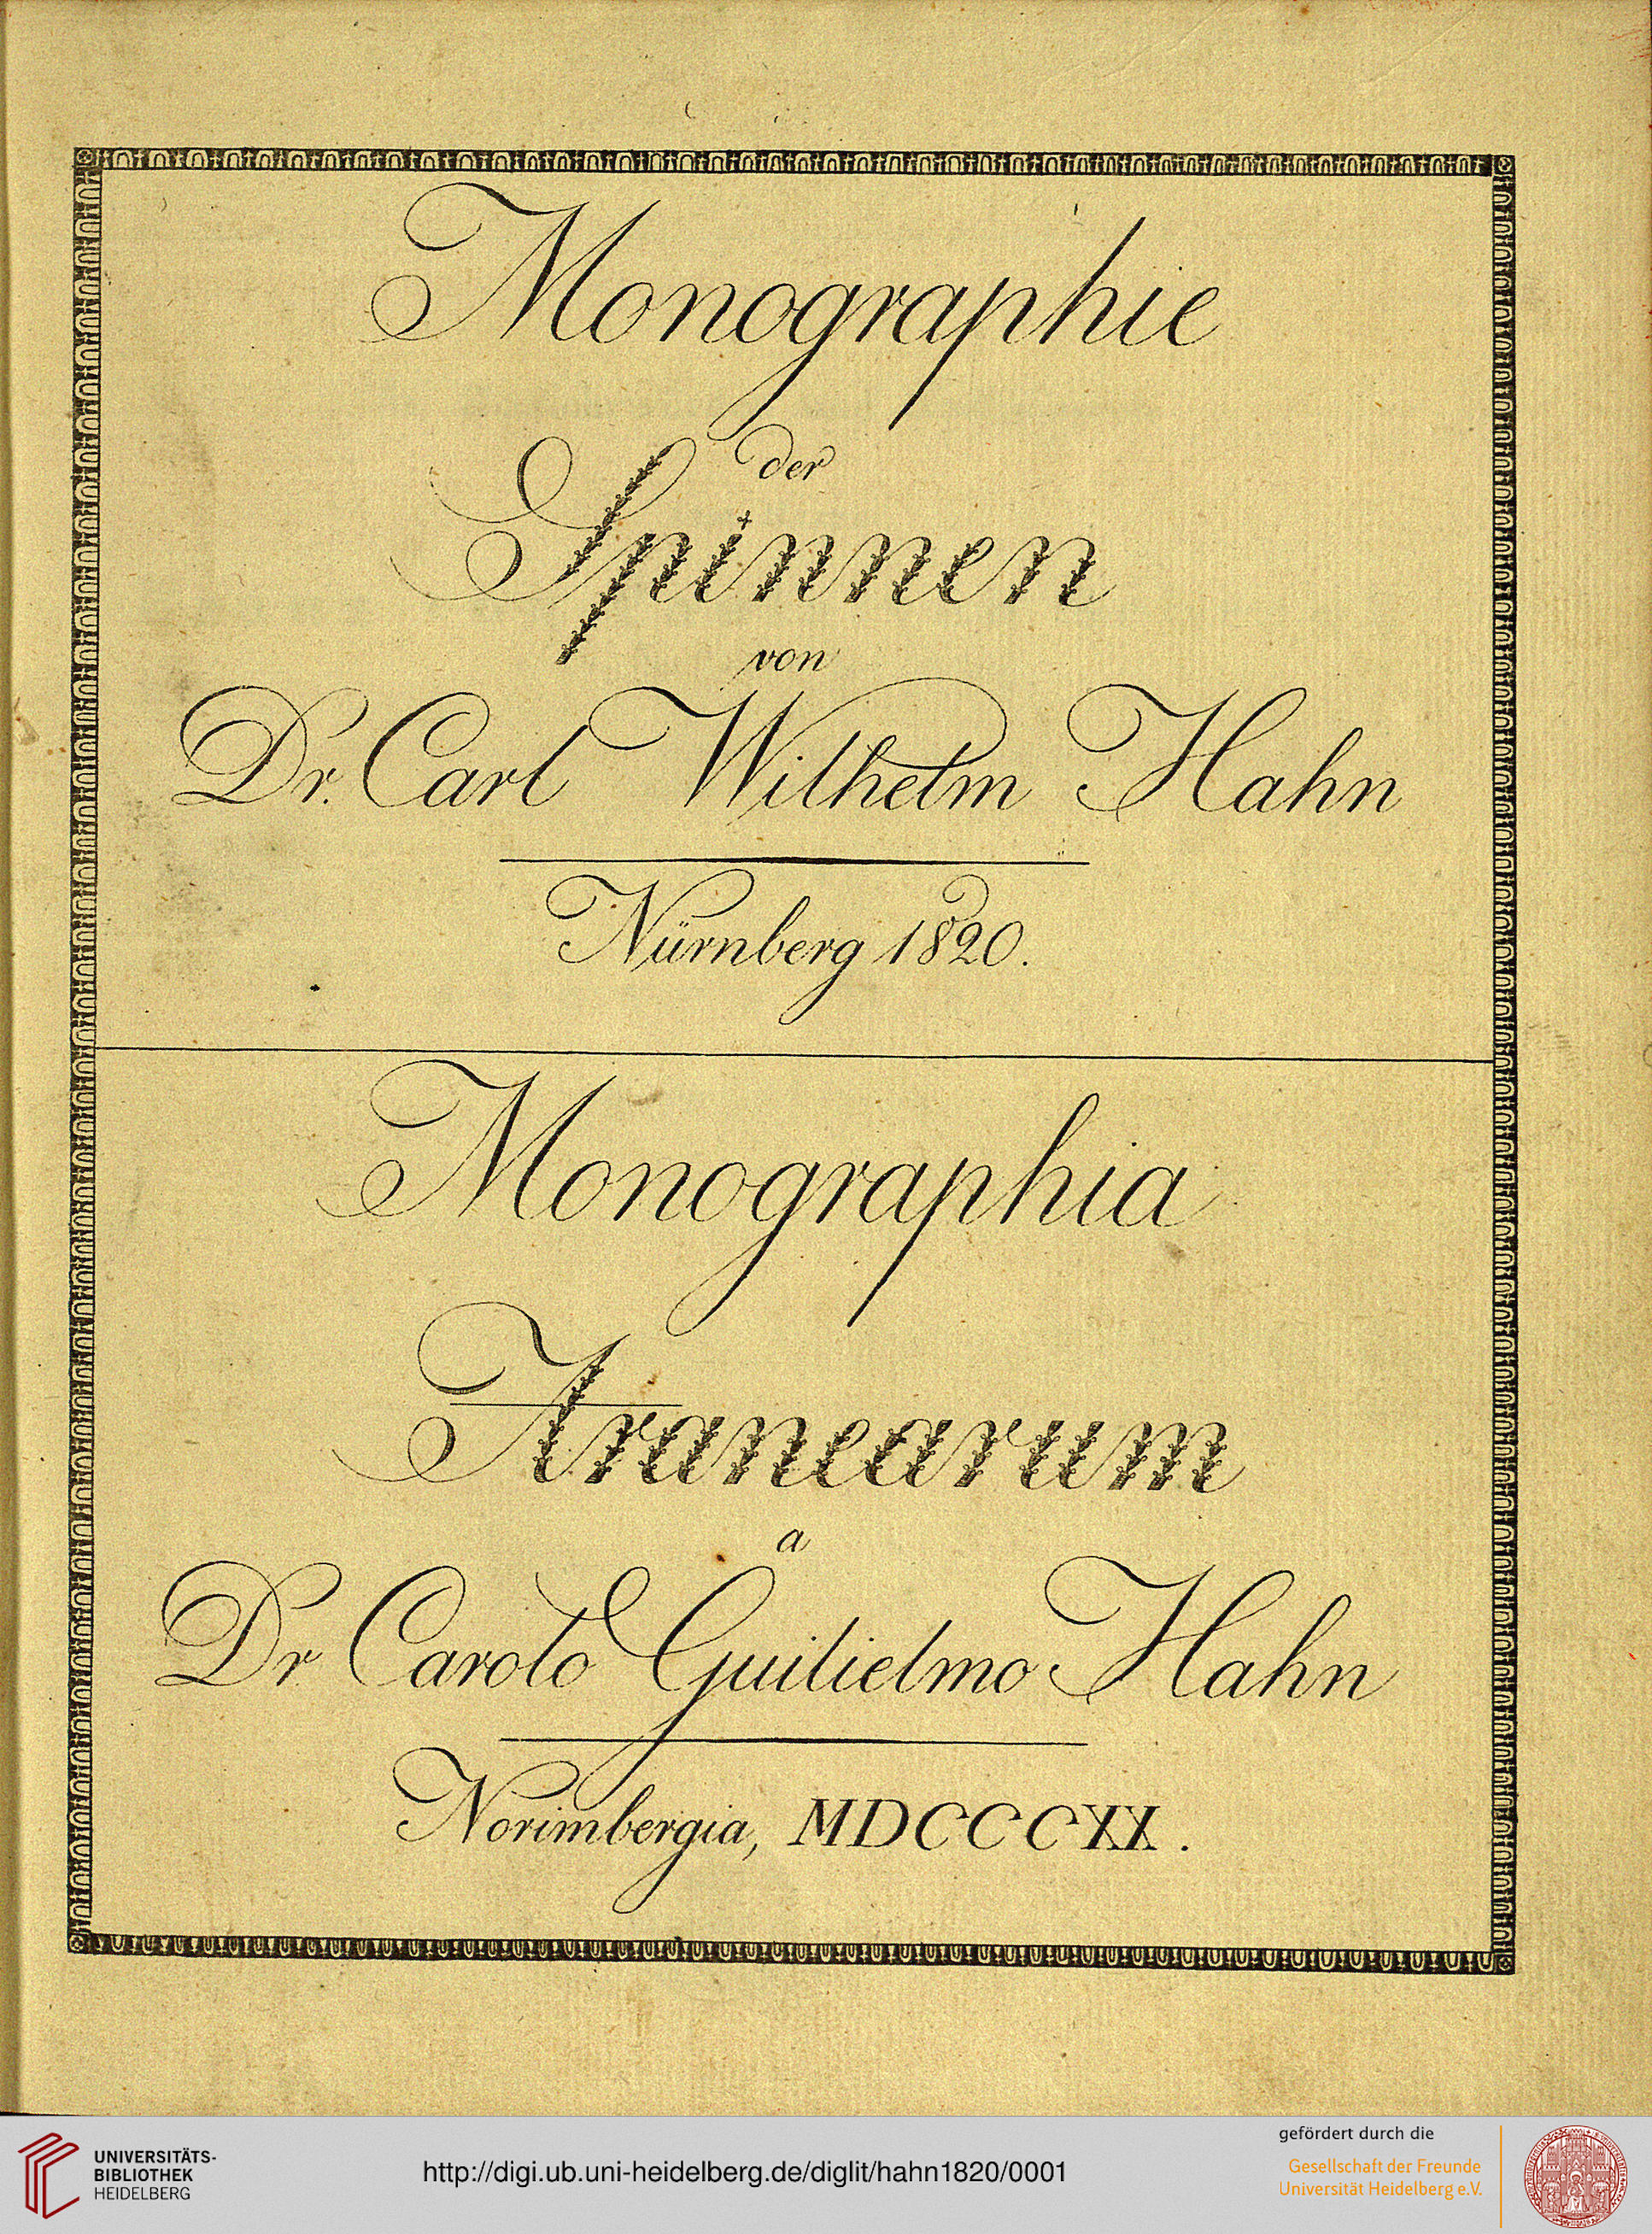 Monographie
der
Spinnen
von
Dr. Carl Wilhelm Hahn
Nürnberg 1820.
Monographia
Aranearum
a
Dr Carolo Guilielmo Hahn
Norimbergia, MDCCCXX.
UNIVERSITÄTS-
BIBLIOTHEK
HEIDELBERG
http://digi.ub.uni-heidelberg.de/diglit/hahn1820/0001
gefördert durch die
Gesellschaft der Freunde
Universität Heidelberg e.V.